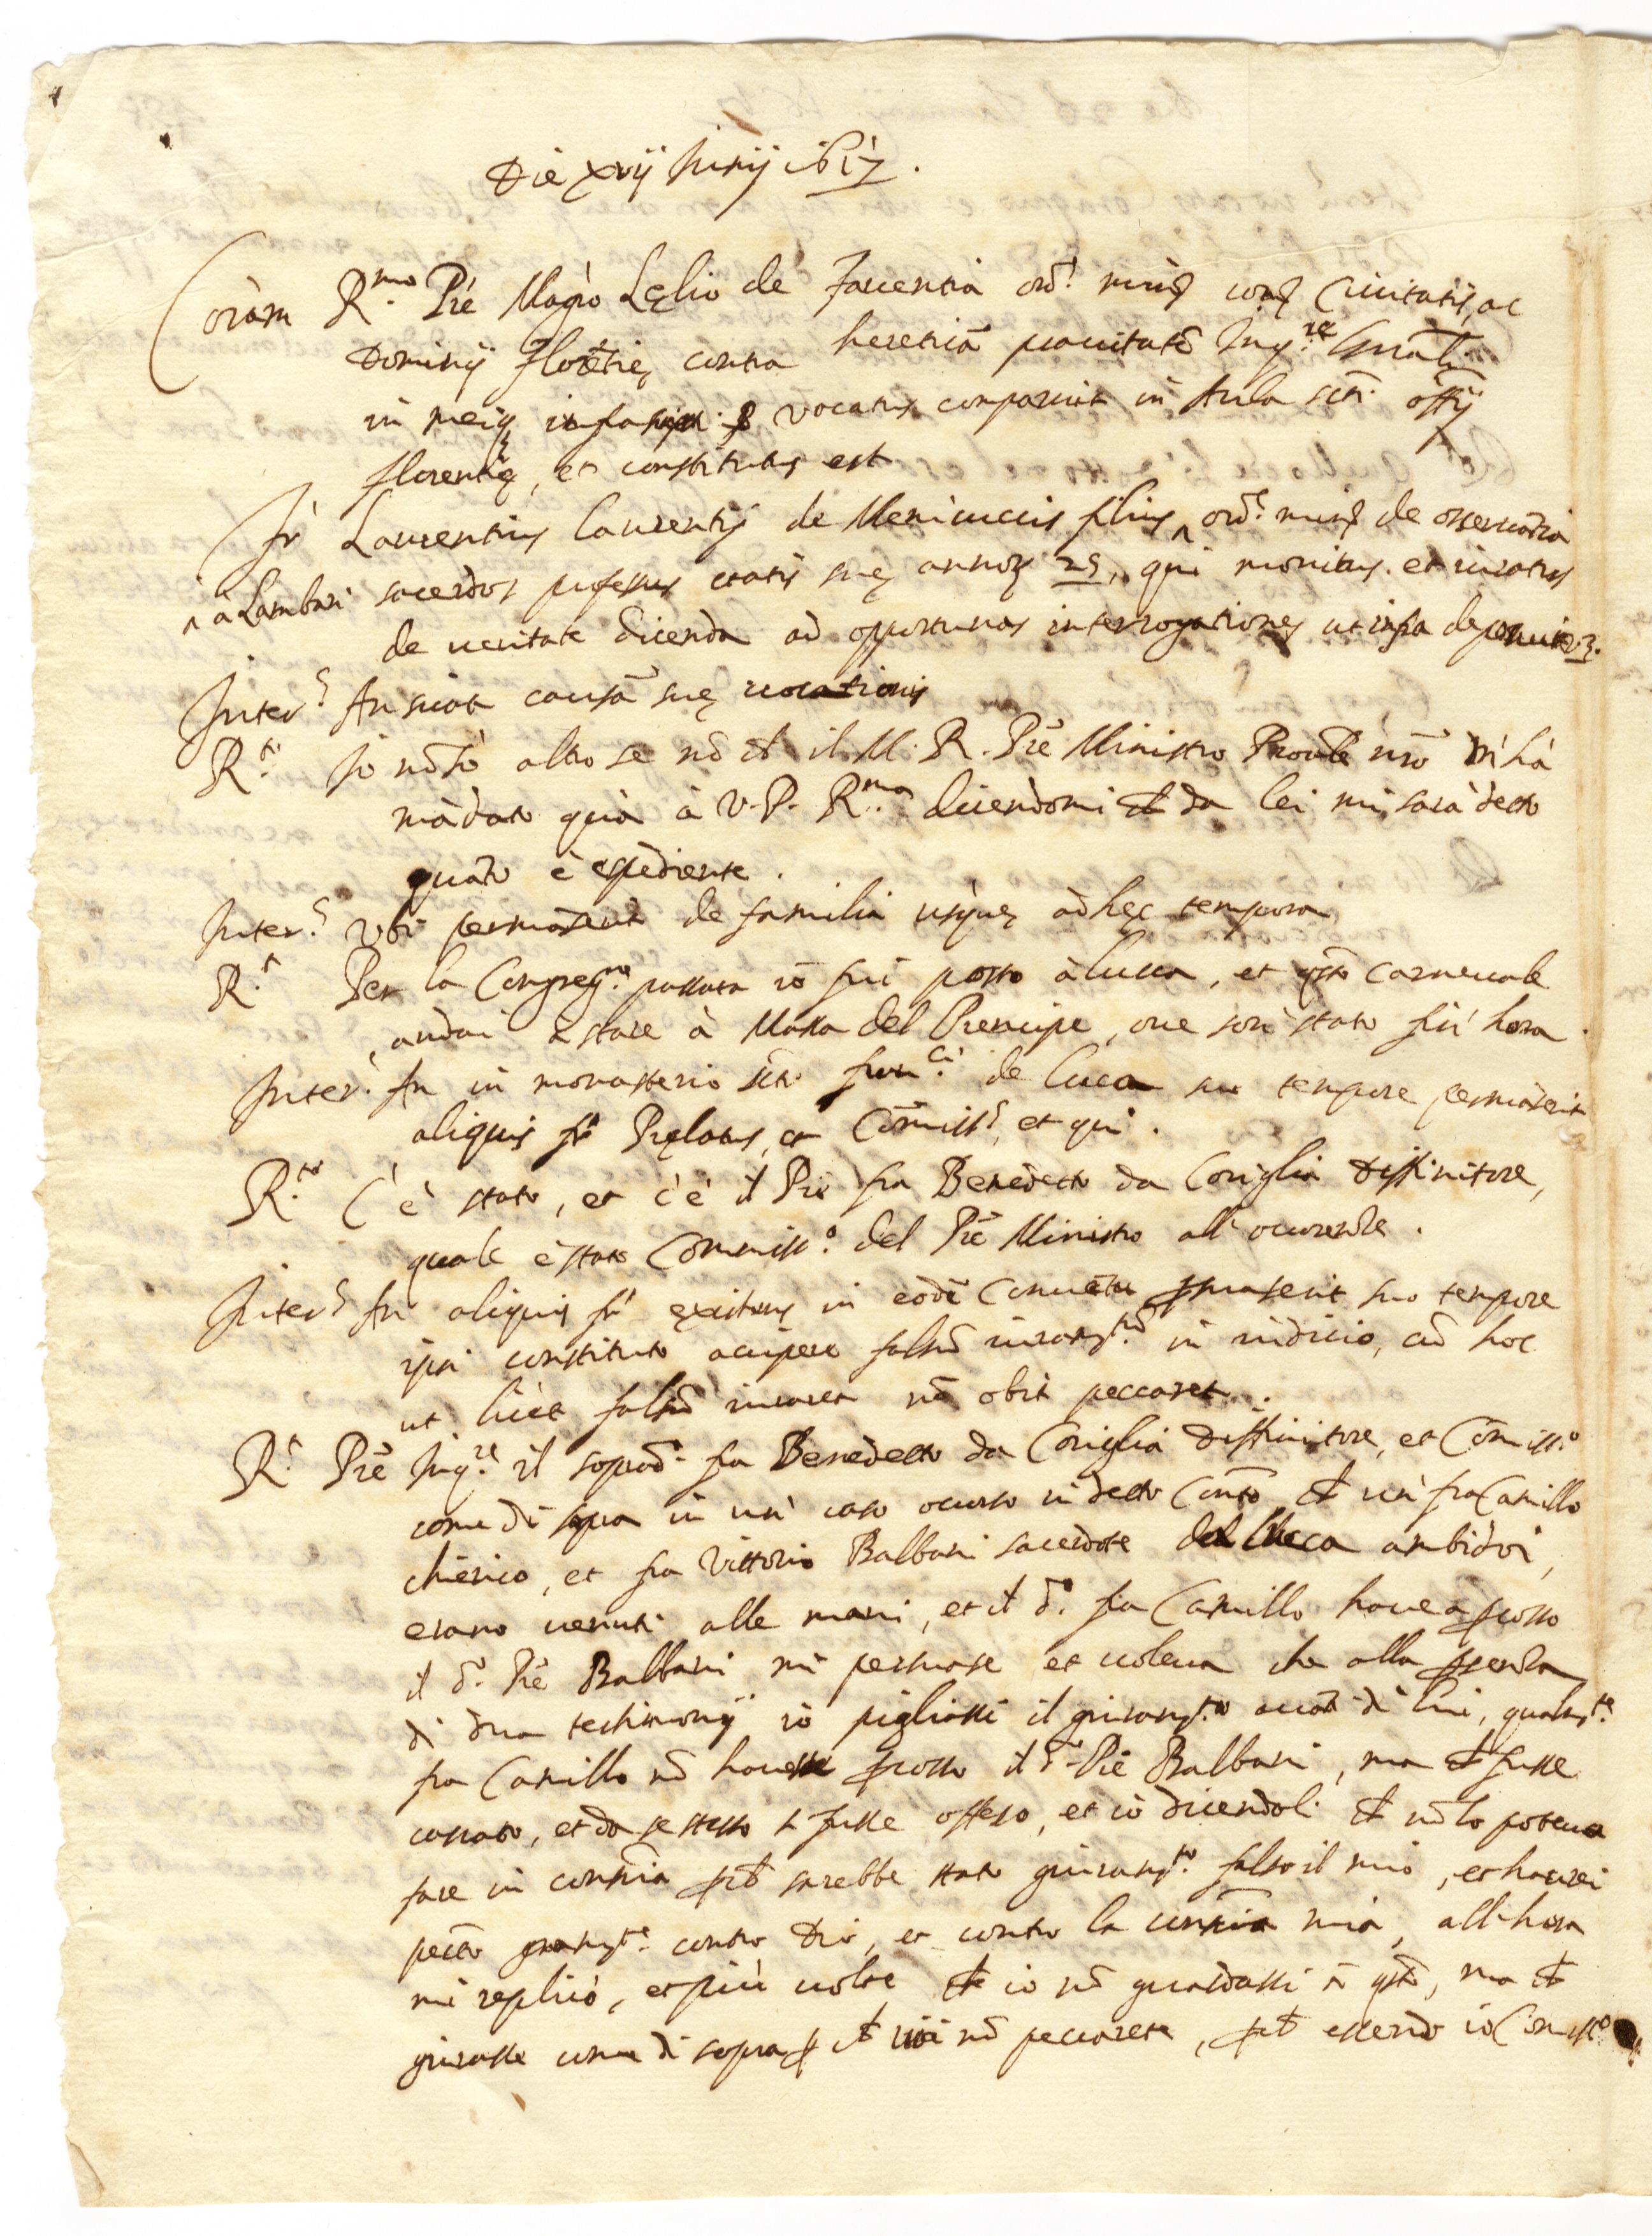 Die xvij Junij 1617.
Coram R.mo Prē Magrō Lęlio de Faventia ord.s minȝ conȝ Civitatis, ac
Dominij Florētię, contra hereticā pravitatē Inq.re Gnāli
in meiq̨ vocatus comparuit in Aula scti offij
florentię, et constitutus est
Fr Laurentius Laurentij de Menicuccis filius ^ ord.s minȝ de osservātia
^ a Lambari sacerdos professus etatis suę annoȝ 25, qui monitus et iuratus
de veritate dicenda ad opportunas interrogationes ut infra deposuit vȝ.
Inter.s An sciat causā suę vocationis
R.t Io nō sò altro se nō ch il M. R. Prē Ministro Provāle nrō m'hà
mādato quà à V. P. R.ma dicendomi ch da lei mi sarà detto
quāto è espediente.
Inter.s Ubi permāserit de familia usque ad hęc tempora
R.t Per la Congreg.ne passata io fui posto à lucca, et qsto carnevale
andai à stare à Massa del Prencipe, ove son stato fin' hora.
Inter.s An in monasterio scti Fran.ci de Luca suo tempore permāserit
aliquis fr Pręlatus, et Cōmiss.s, et qui.
R.t C'è stato, et c'è il Prē fra Benedetto da Coniglia Diffinitore,
quale è stato Commiss.o del Prē Ministro all' ocurenze.
Inter.s An aliquis fr existens in eodē Convētu suo tempore
ipsi constituto accipere falsū iuram.tū in iudicio, cū hoc
ut licet falsū iuraret nō obit peccaret.
R.t Prē Inq.re il soprad.o fra Benedetto da Coniglia Diffinitore, et Cōmiss.o
come di sopra in un' caso ocurso in detto Convto ch un' fra Camillo
chierico, et fra Vittorio Balbani sacerdote da Lucca ambidoi,
erano venuti alle mani, et il d.o fra Camillo havea pcosso
il d.o Prē Balbani mi persuase et voleva che alla psenza
di dua testimonij io pigliassi il giuram.to avāti di lui, qualm.te
fra Camillo nō havesse pcosso il d.o Prē Balbani, ma ch fusse
cascato, et da se stesso si fusse offeso, et io dicendoli ch nō lo poteva
fare in consciā pch sarebbe stato giuram.to falso il mio, et haurei
pecto gravem.te contro Dio, et contro la conscia mia, all' hora
mi replicò, et più volte ch io nō guardassi à qsto, ma ch
giurasse come di sopra ch nō peccarete, pch essendo io Comiss.o